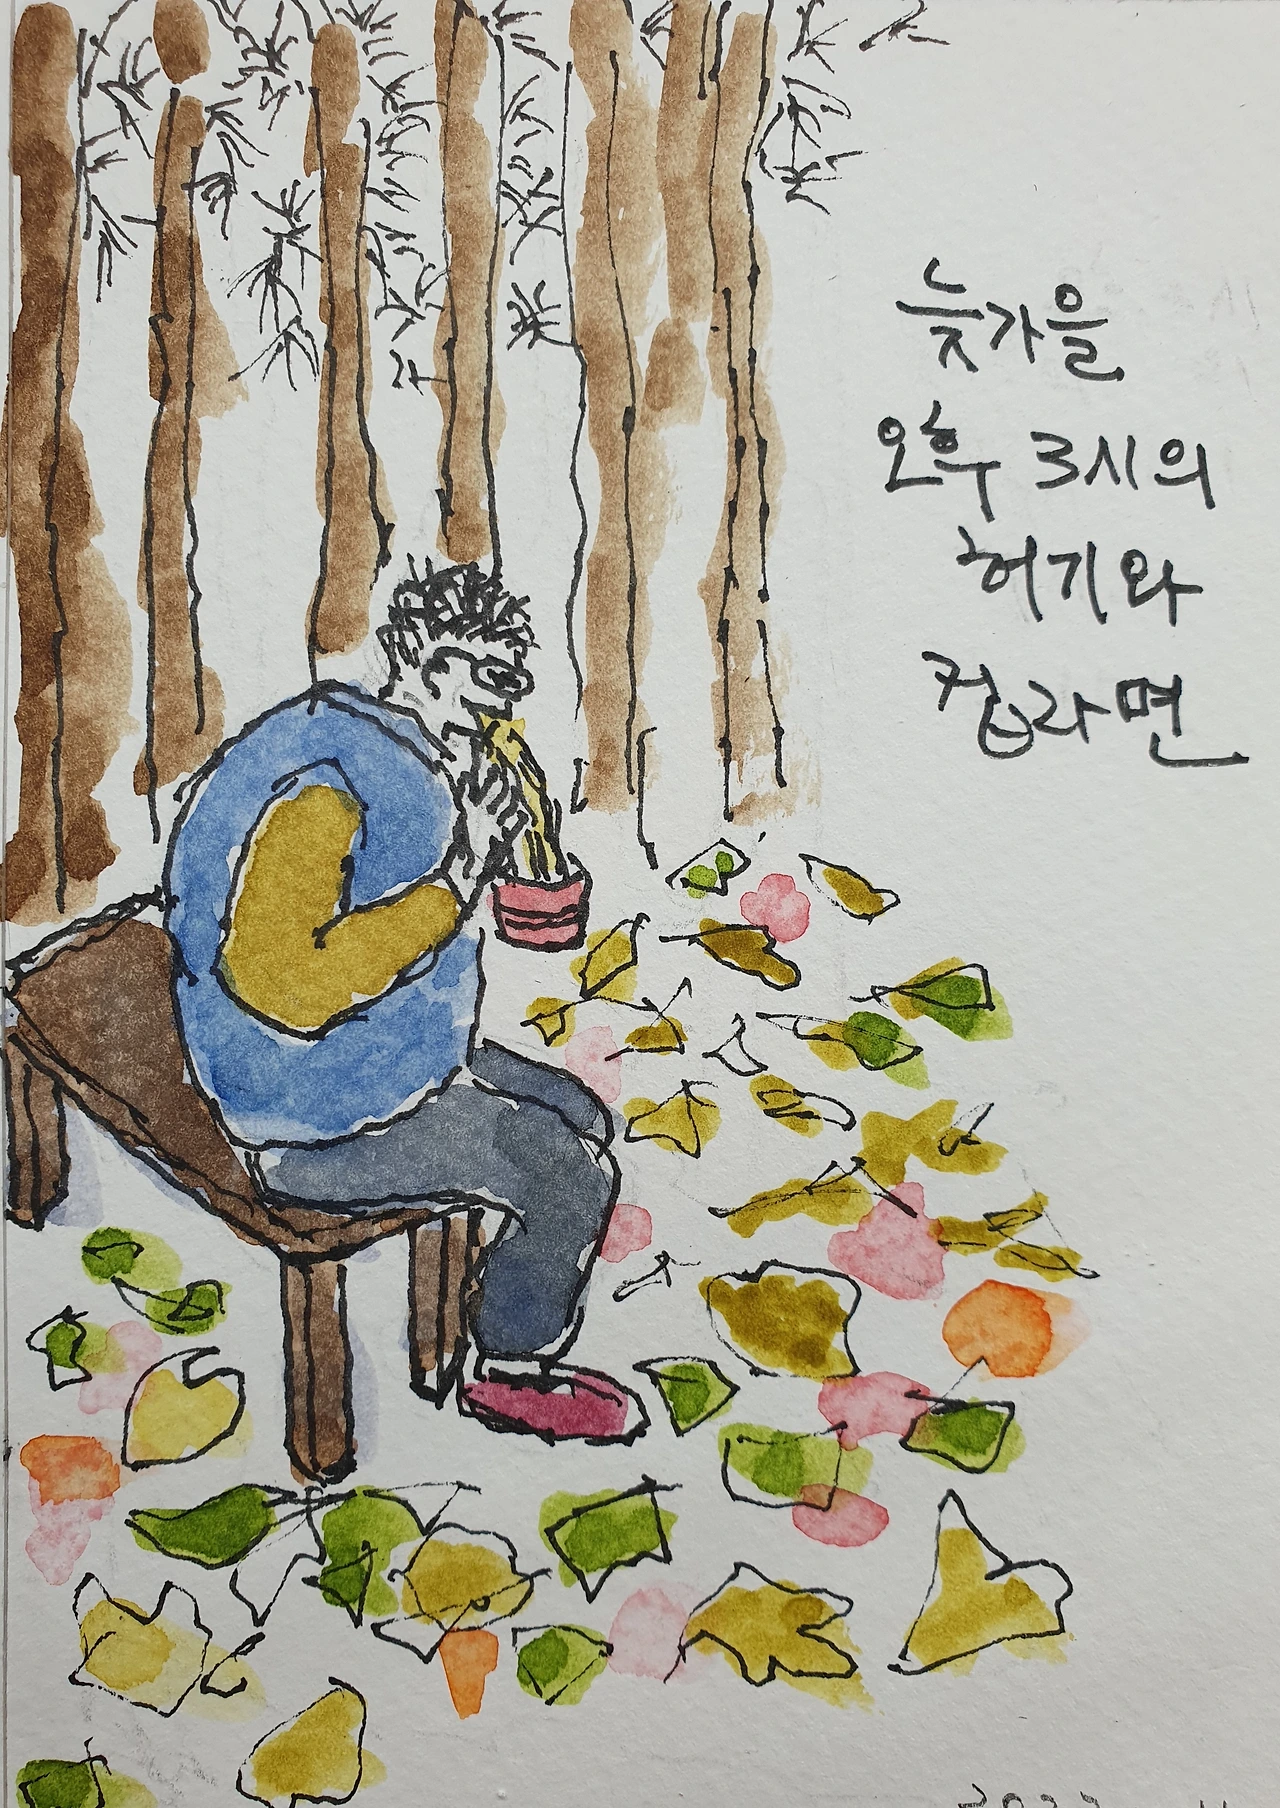 늦가을
오후 3시의
허기와
컵라면